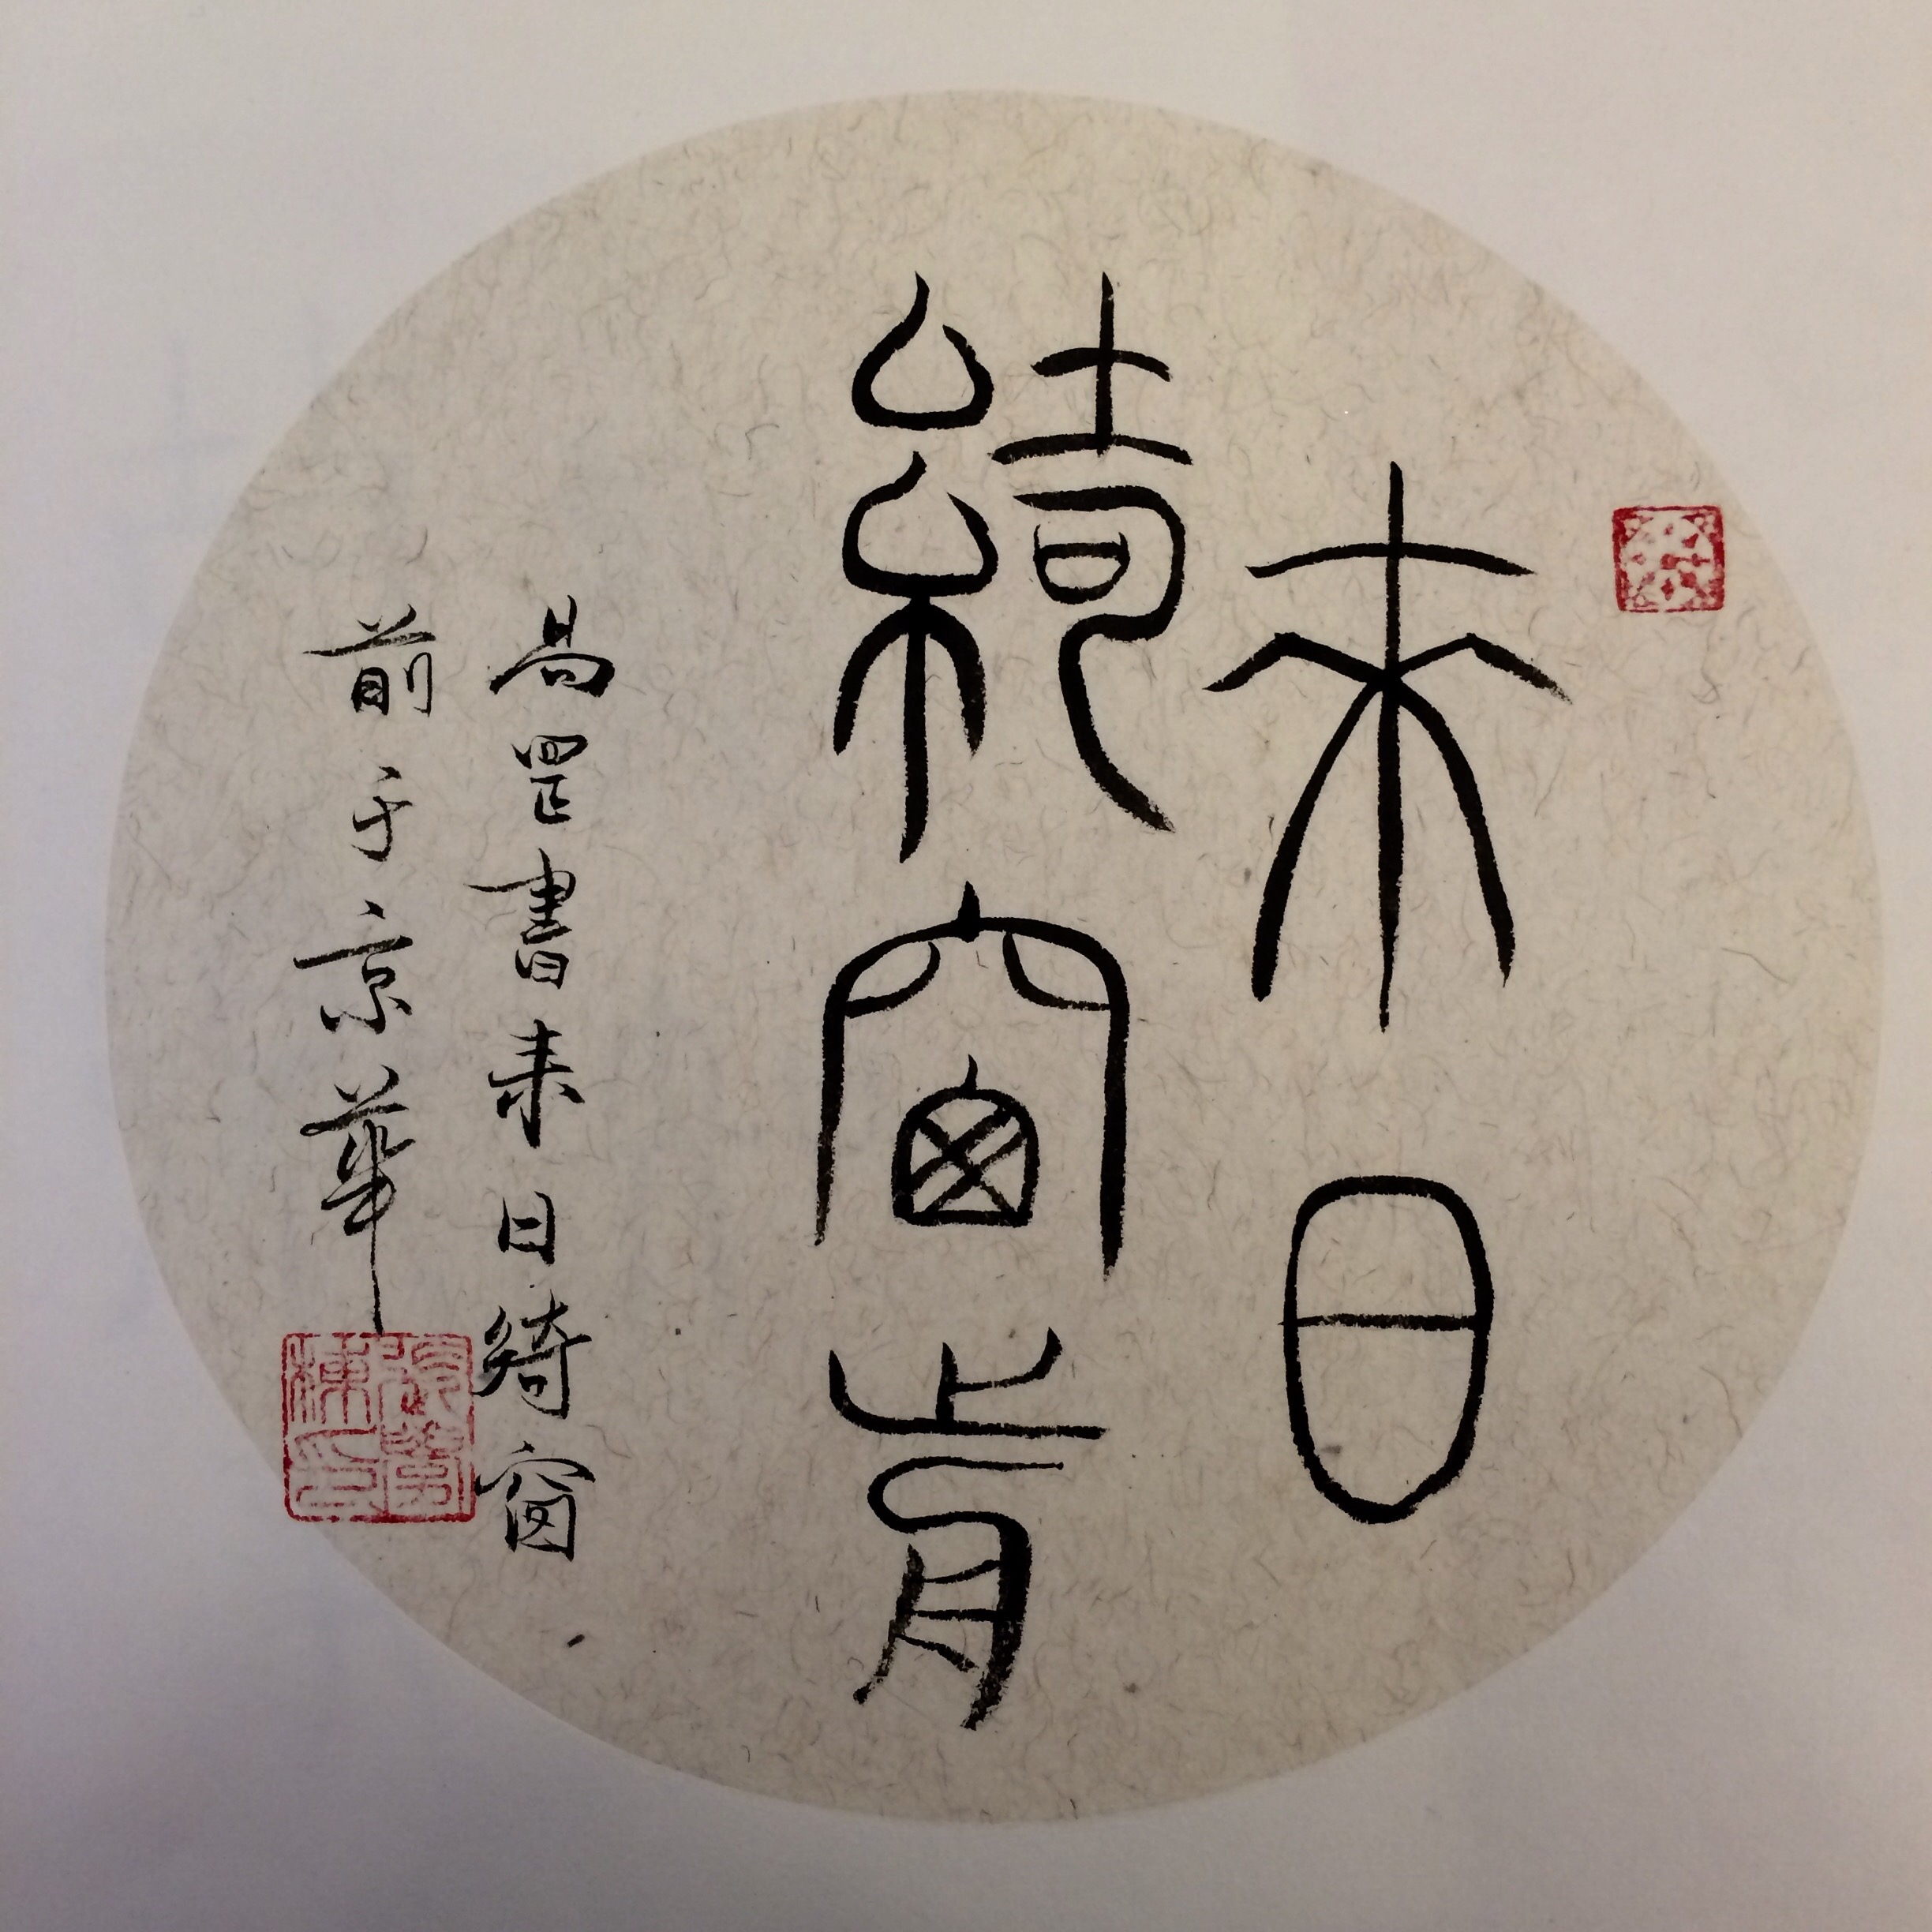 来日
綺窗前
昜罡書来日綺窗
前于京華